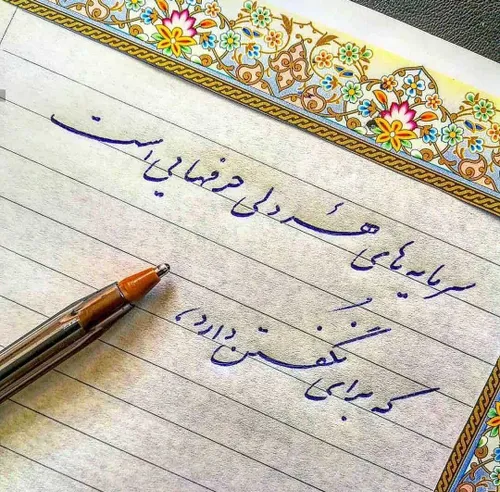 سرمایه‌های هر دلی حرفهایی است
که برای نگفتن دارد،